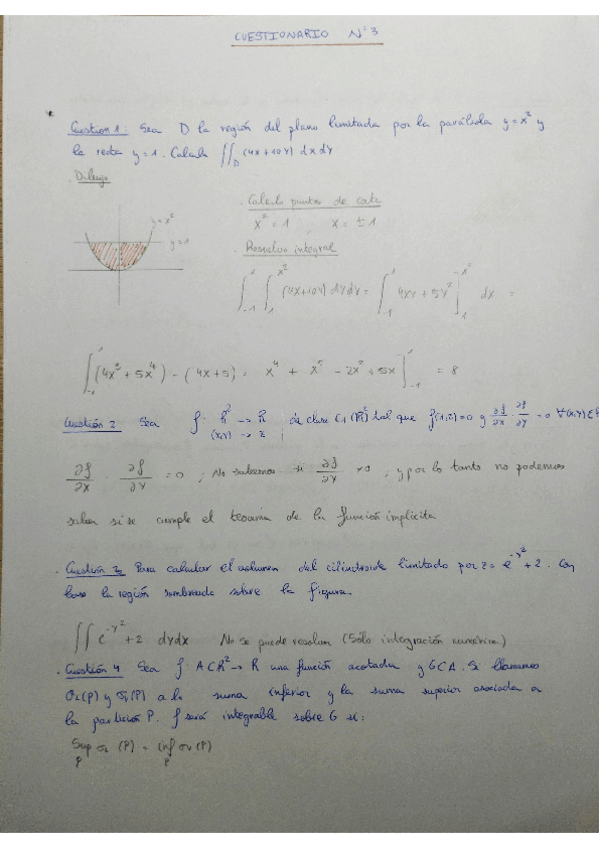 CUESTIONARIO Nº 3
Cuestion 1: Sea D la región del plano limitada por la parábola y = x² y
la recta y = 1. Calcula ∬_D (4x + 10y) dx dy
. Dibujo
. Calculo puntos de corte
x² = 1 , x = ±1
y = x²
y = 1
. Resuelvo integral
∫_{-1}^{1} ∫_{1}^{x²} (4x+10y) dy dx = ∫_{-1}^{1} 4xy + 5y² ]_{1}^{x²} dx =
∫_{-1}^{1} (4x³ + 5x⁴) - (4x+5) = x⁴ + x⁵ - 2x² + 5x ]_{-1}^{1} = 8
Cuestión 2 Sea f: R² → R de clase C1 (R²) tal que f(1,2)=0 y ∂f/∂x · ∂f/∂y = 0 ∀(x,y)∈
(x,y) → z
∂f/∂x · ∂f/∂y = 0 ; No sabemos si ∂f/∂y ≠ 0 , y por lo tanto no podemos
saber si se cumple el teorema de la función implicita
. Cuestión 3 Para calcular el volumen del cilindroide limitado por z = e^{-y²} + 2. Con
base la región sombreada sobre la figura.
∬ e^{-y²} + 2 dy dx No se puede resolver (Sólo integración numérica)
. Cuestión 4 Sea f: A⊂R² → R una función acotada y G⊂A. Si llamamos
a la suma inferior y la suma superior asociada a
la partición P. f será integrable sobre G si:
Sup (P) = inf (P)
P P